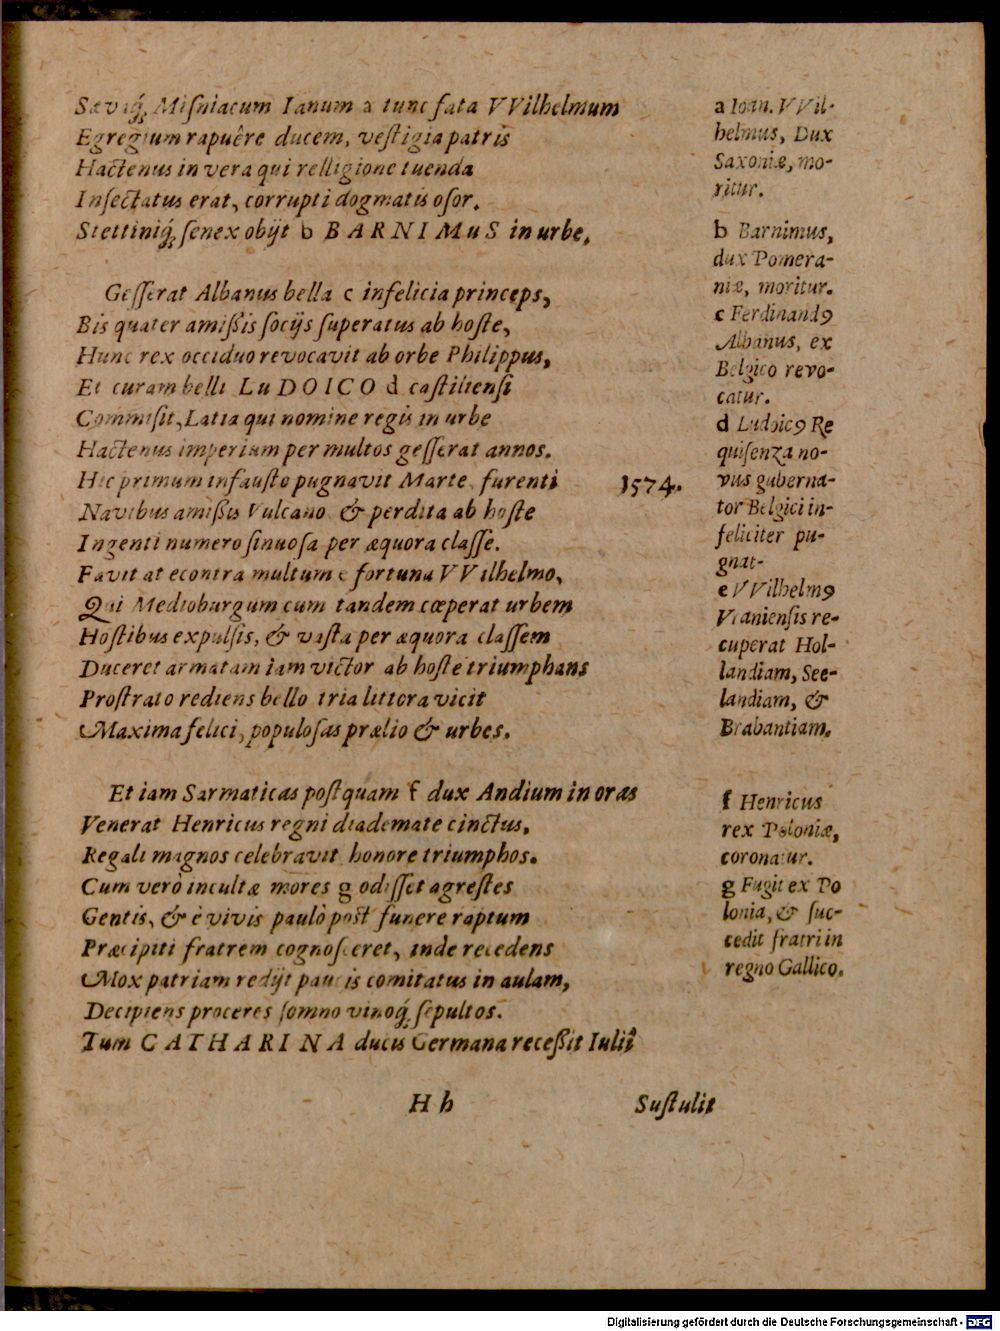 Sævıq́; Misniacum Ianum a tunc fata VVilhelmum
Egregium rapuêre ducem, vestigia patris
Hactenus in vera qui relligione tuenda
Insectatus erat, corrupti dogmatis osor.
Stettiniq́; senex obijt b BARNIMuS in urbe,
Gesserat Albanus bella c infelicia princeps,
Bis quater amißis socijs superatus ab hoste,
Hunc rex occiduo revocavit ab orbe Philippus,
Et curam belli LuDOICO d castiliensi
Commisit, Latia qui nomine regis in urbe
Hactenus imperium per multos gesserat annos.
Hic primum infausto pugnavit Marte, furenti
Navibus amißis Vulcano, & perdita ab hoste
Ingenti numero sinuosa per æquora classe.
Favit at econtra multum e fortuna VVilhelmo,
Qui Medioburgum cum tandem cœperat urbem
Hostibus expulsis, & vasta per æquora classem
Duceret armatam iam victor ab hoste triumphans
Prostrato rediens bello tria littora vicit
Maxima felici, populosas prælio & urbes.
Et iam Sarmaticas postquam f dux Andium in oras
Venerat Henricus regni diademate cinctus,
Regali magnos celebravit honore triumphos.
Cum verò incultæ mores g odisset agrestes
Gentis, & è vivis paulò post funere raptum
Præcipiti fratrem cognosceret, inde recedens
Mox patriam redijt paucis comitatus in aulam,
Decipiens proceres somno vinoq́; sepultos.
Tum CATHARINA ducis Germana receßit Iulii
H h
Sustulit
1574.
a Ioan. VVil-
helmus, Dux
Saxoniæ, mo-
ritur.
b Barnimus,
dux Pomera-
niæ, moritur.
c Ferdinandꝰ
Albanus, ex
Belgico revo-
catur.
d Ludoicꝰ Re
quisenza no-
vus guberna-
tor Belgici in-
feliciter pu-
gnat-
e VVilhelmꝰ
Vraniensis re-
cuperat Hol-
landiam, See-
landiam, &
Brabantiam.
f Henricus
rex Poloniæ,
coronatur.
g Fugit ex Po
lonia, & suc-
cedit fratri in
regno Gallico.
Digitalisierung gefördert durch die Deutsche Forschungsgemeinschaft - DFG